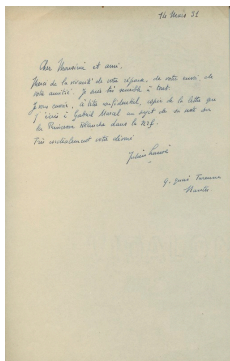 14 Mars 52
Cher Monsieur et ami,
Merci de la de votre réponse, de votre envoi, de
votre amitié. Je suis très sensible à tout.
Je vous envoie, à titre confidentiel, copie de la lettre que
j'écris à Gabriel Marcel au sujet de sa note sur
la blanche dans la NRF.
Très cordialement votre dévoué
Julien Lanoë
9, quai Turenne
Nantes